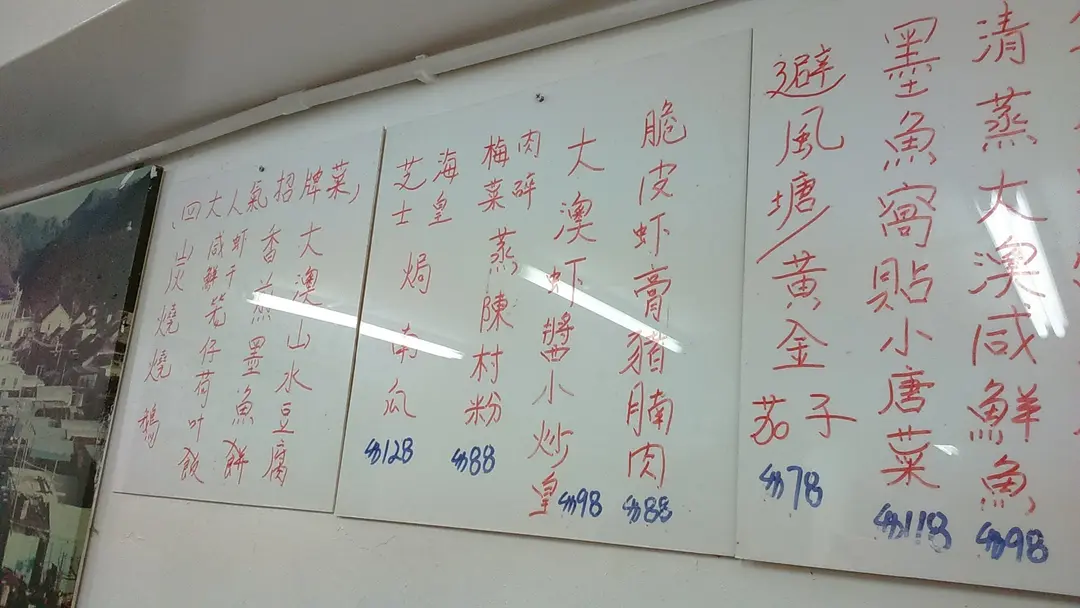 清蒸大澳咸鮮魚
$98
墨魚窩貼小唐菜
$118
避風塘黃金茄子
$78
脆皮虾膏豬腩肉
$88
大澳虾醬小炒皇
$98
梅菜肉碎蒸陳村粉
$88
海皇芝士焗南瓜
$128
四大人氣招牌菜
大澳山水豆腐
香煎墨魚餅
咸鮮虾干笼仔荷叶飯
炭燒燒鵝